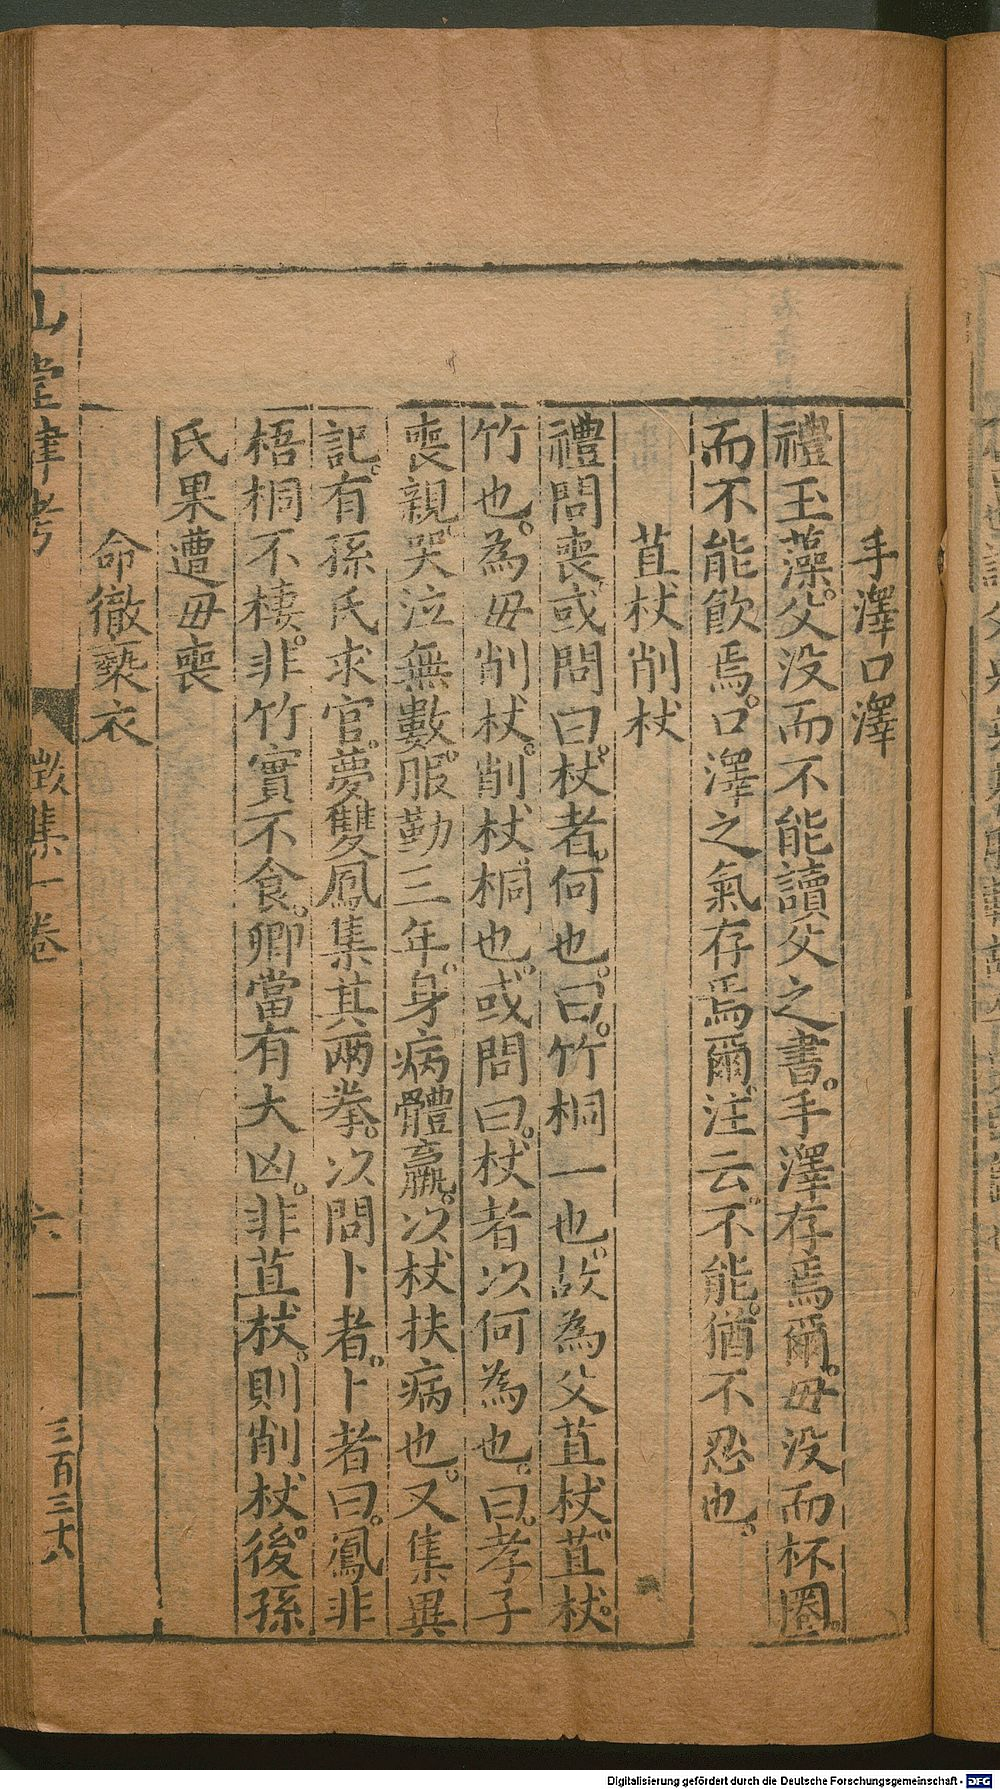 手澤口澤
禮玉藻。父没而不能讀父之書。手澤存焉爾。毋没而杯圈。
而不能飲焉。口澤之氣存焉爾。注云。不能。猶不忍也。
苴杖削杖
禮問喪。或問曰。杖者。何也。曰。竹桐一也。故為父苴杖。苴杖。
竹也。為毋削杖。削杖。桐也。或問曰。杖者以何為也。曰。孝子
喪親。哭泣無數。服勤三年。身病體羸。以杖扶病也。又集異
記。有孫氏求官。夢雙鳳集其兩拳。以問卜者。卜者曰。鳳非
梧桐不棲。非竹實不食。卿當有大凶。非苴杖。則削杖。後孫
氏果遭毋喪
命徹褻衣
山堂肆考
徵集一卷
六
三百三十八
Digitalisierung gefördert durch die Deutsche Forschungsgemeinschaft - DFG